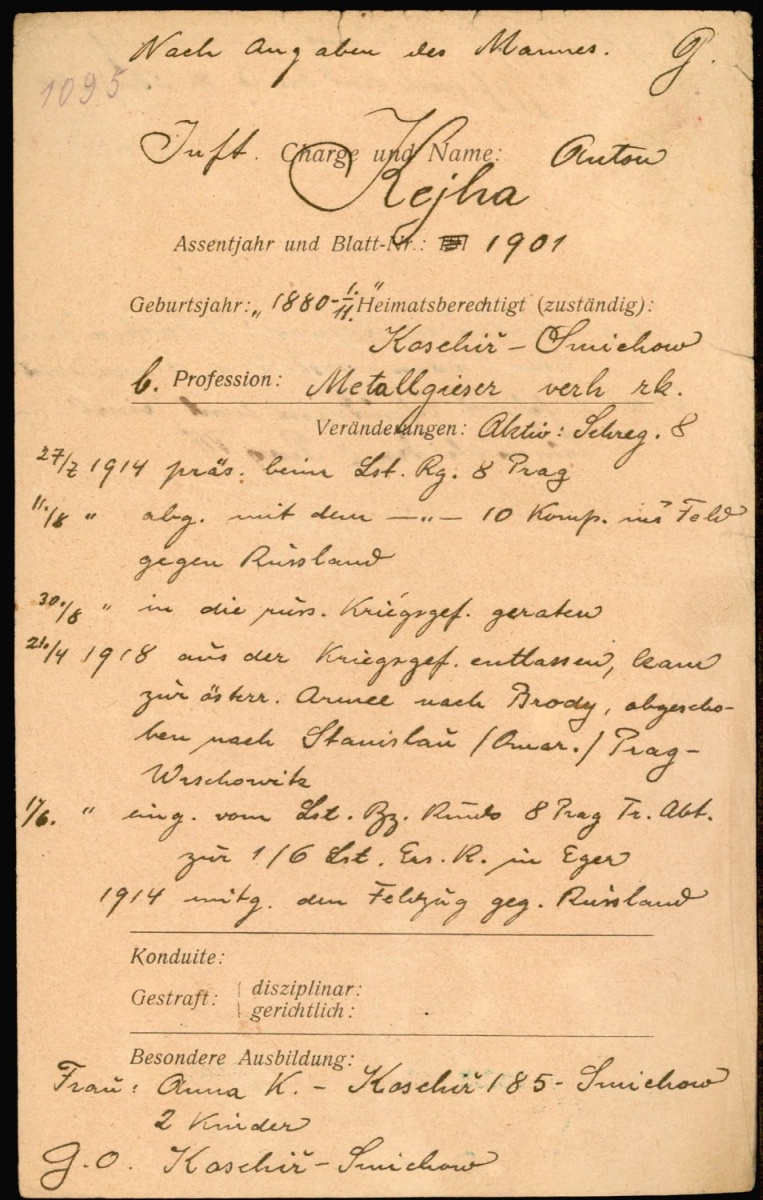 Nach Angaben des Mannes. G.
1095
Inft. Charge und Name: Anton
Kejha
Assentjahr und Blatt-Nr.: 1901
Geburtsjahr: „ 1880-1./II." Heimatsberechtigt (zuständig):
Koschiř - Smichow
b. Profession: Metallgieser verh rk.
Veränderungen: Aktiv: Schreg. 8
27/7 1914 präs. beim Lst. Rg. 8 Prag
11./8 " abg. mit dem —"— 10 Komp. ins Feld
gegen Russland
30./8 " in die russ. Kriegsgef. geraten
21./4 1918 aus der Kriegsgef. entlassen, kam
zur österr. Armee nach Brody, abgescho-
ben nach Stanislau / / Prag-
Wrschowitz
17/6. " eing. vom Lst. Bz. Kmdo 8 Prag Tr. Abt.
zur 1/6 Lst. Ers. K. in Eger
1914 mitg. den Feldzug geg. Russland
Konduite:
Gestraft: disziplinar:
gerichtlich:
Besondere Ausbildung:
Frau: Anna K. - Koschiř 185 - Smichow
2 Kinder
G.O. Koschiř - Smichow